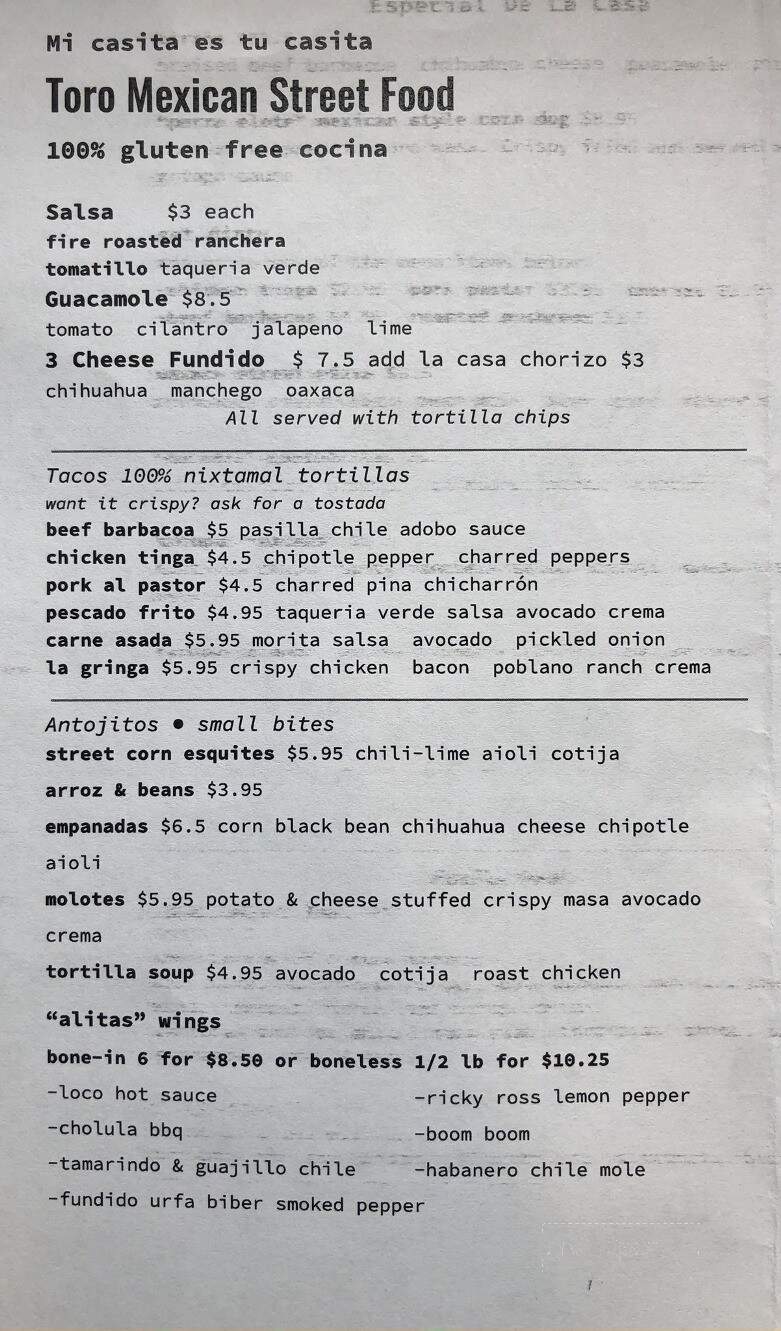 Especial De La Casa
Mi casita es tu casita
Toro Mexican Street Food
"perro elote" mexican style corn dog $8.95
100% gluten free cocina
Salsa $3 each
fire roasted ranchera
tomatillo taqueria verde
Guacamole $8.5
tomato cilantro jalapeno lime
3 Cheese Fundido $ 7.5 add la casa chorizo $3
chihuahua manchego oaxaca
All served with tortilla chips
Tacos 100% nixtamal tortillas
want it crispy? ask for a tostada
beef barbacoa $5 pasilla chile adobo sauce
chicken tinga $4.5 chipotle pepper charred peppers
pork al pastor $4.5 charred pina chicharrón
pescado frito $4.95 taqueria verde salsa avocado crema
carne asada $5.95 morita salsa avocado pickled onion
la gringa $5.95 crispy chicken bacon poblano ranch crema
Antojitos • small bites
street corn esquites $5.95 chili-lime aioli cotija
arroz & beans $3.95
empanadas $6.5 corn black bean chihuahua cheese chipotle
aioli
molotes $5.95 potato & cheese stuffed crispy masa avocado
crema
tortilla soup $4.95 avocado cotija roast chicken
“alitas” wings
bone-in 6 for $8.50 or boneless 1/2 lb for $10.25
-loco hot sauce
-ricky ross lemon pepper
-cholula bbq
-boom boom
-tamarindo & guajillo chile
-habanero chile mole
-fundido urfa biber smoked pepper